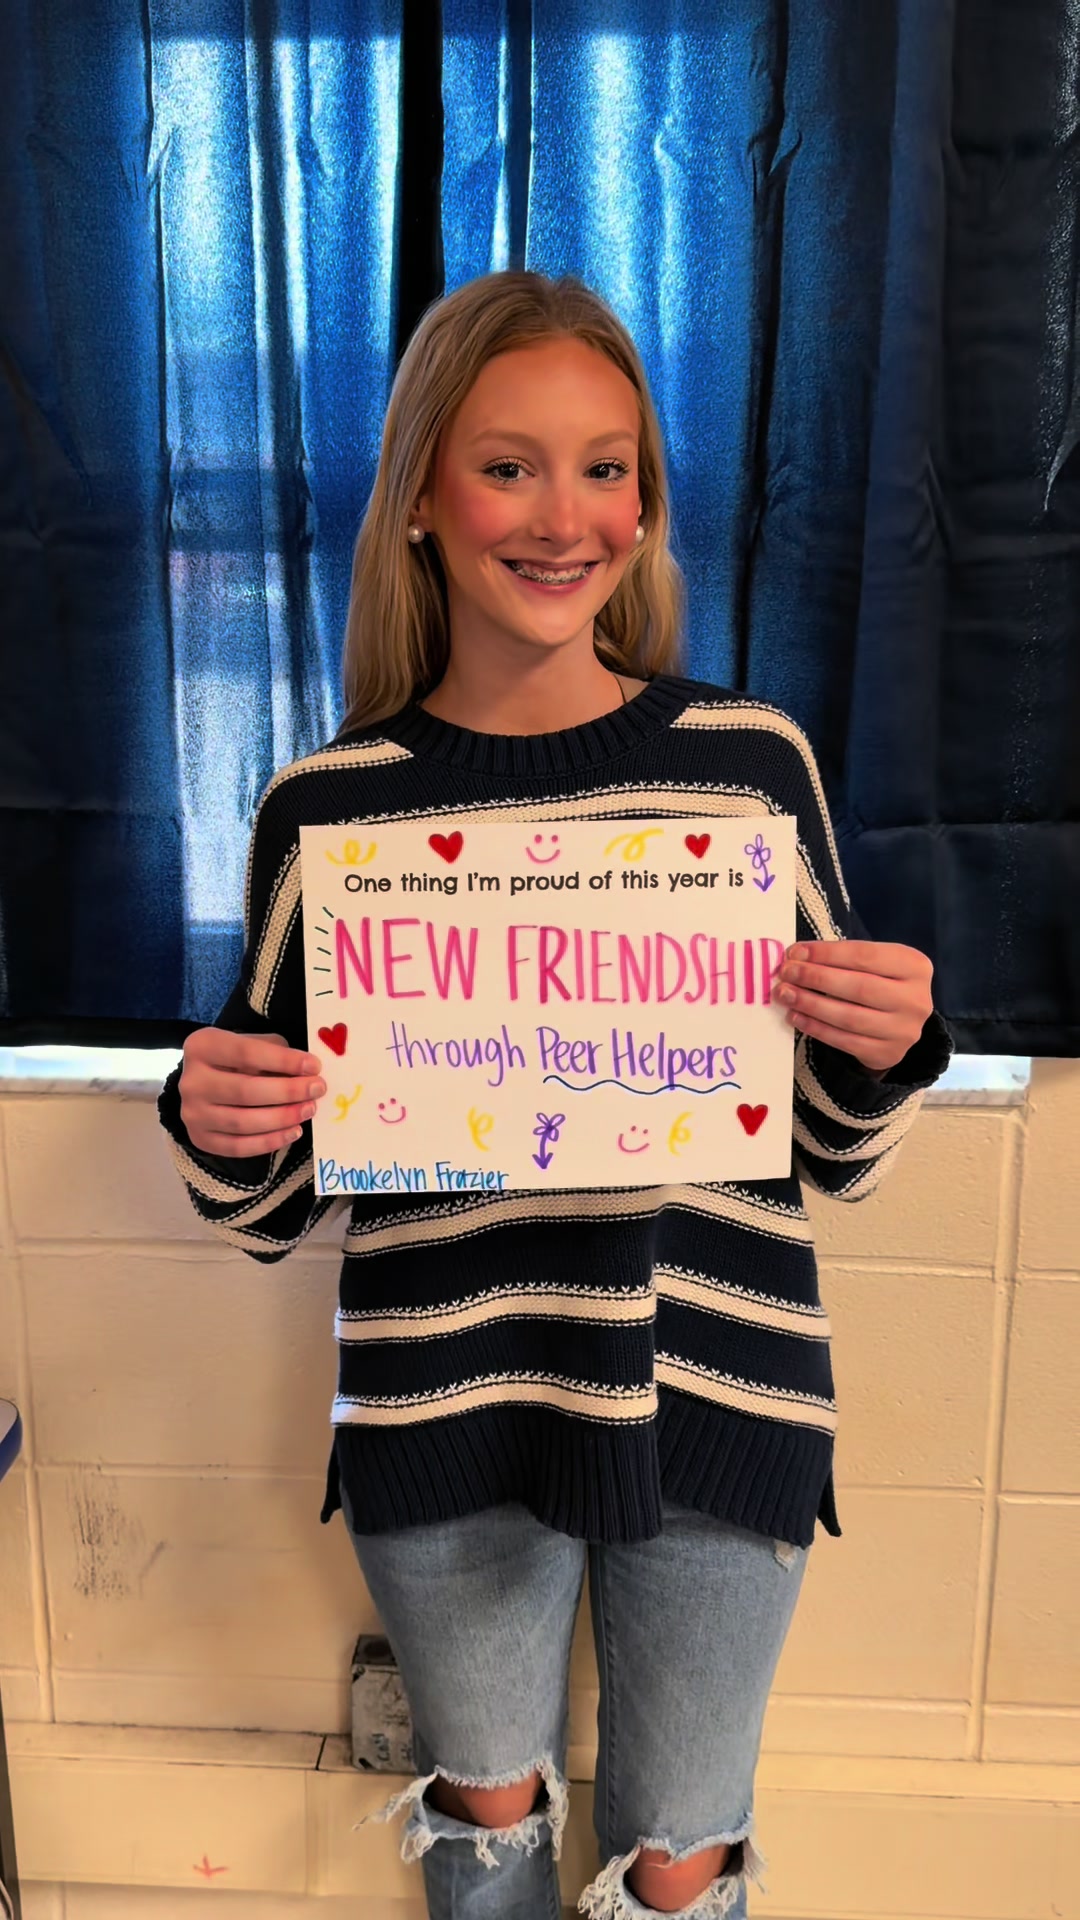 One thing I'm proud of this year is
NEW FRIENDSHIP
through Peer Helpers
Brookelyn Frazier